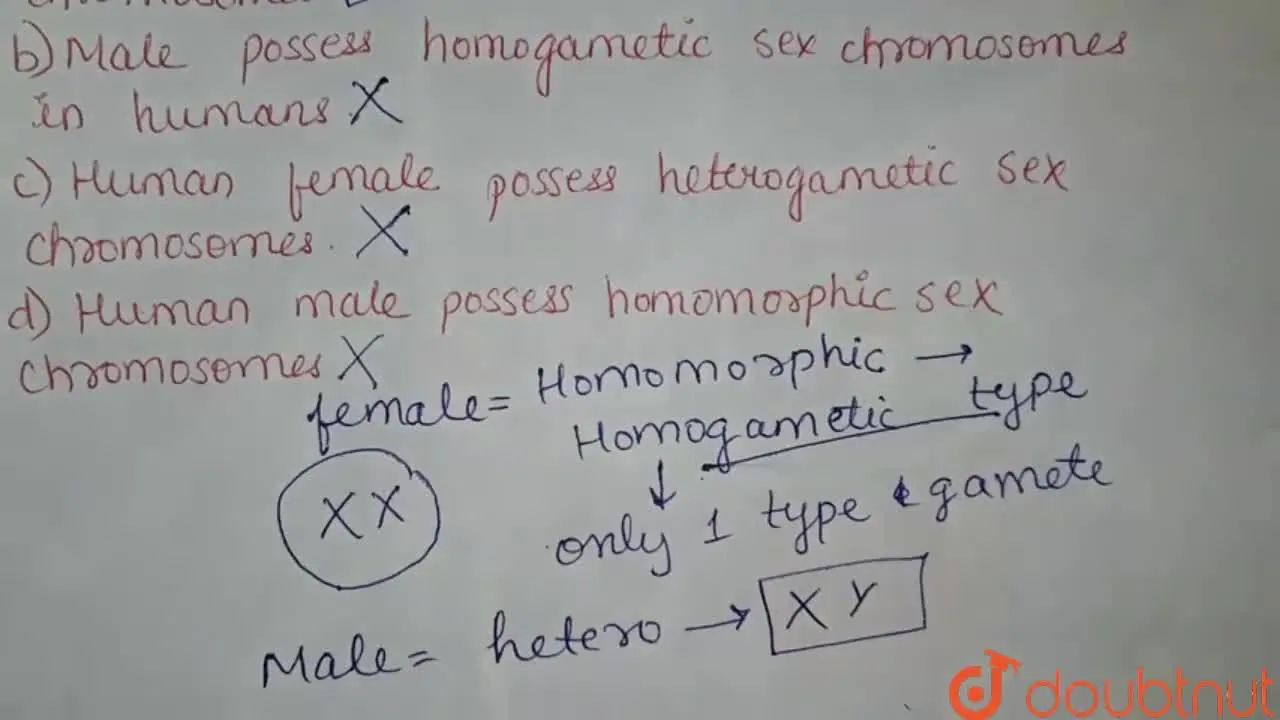 b) Male possess homogametic sex chromosomes
in humans X
c) Human female possess heterogametic sex
chromosomes. X
d) Human male possess homomorphic sex
chromosomes X
female = Homomorphic →
Homogametic type
↓
XX
only 1 type gamete
Male = hetero → XY
doubtnut